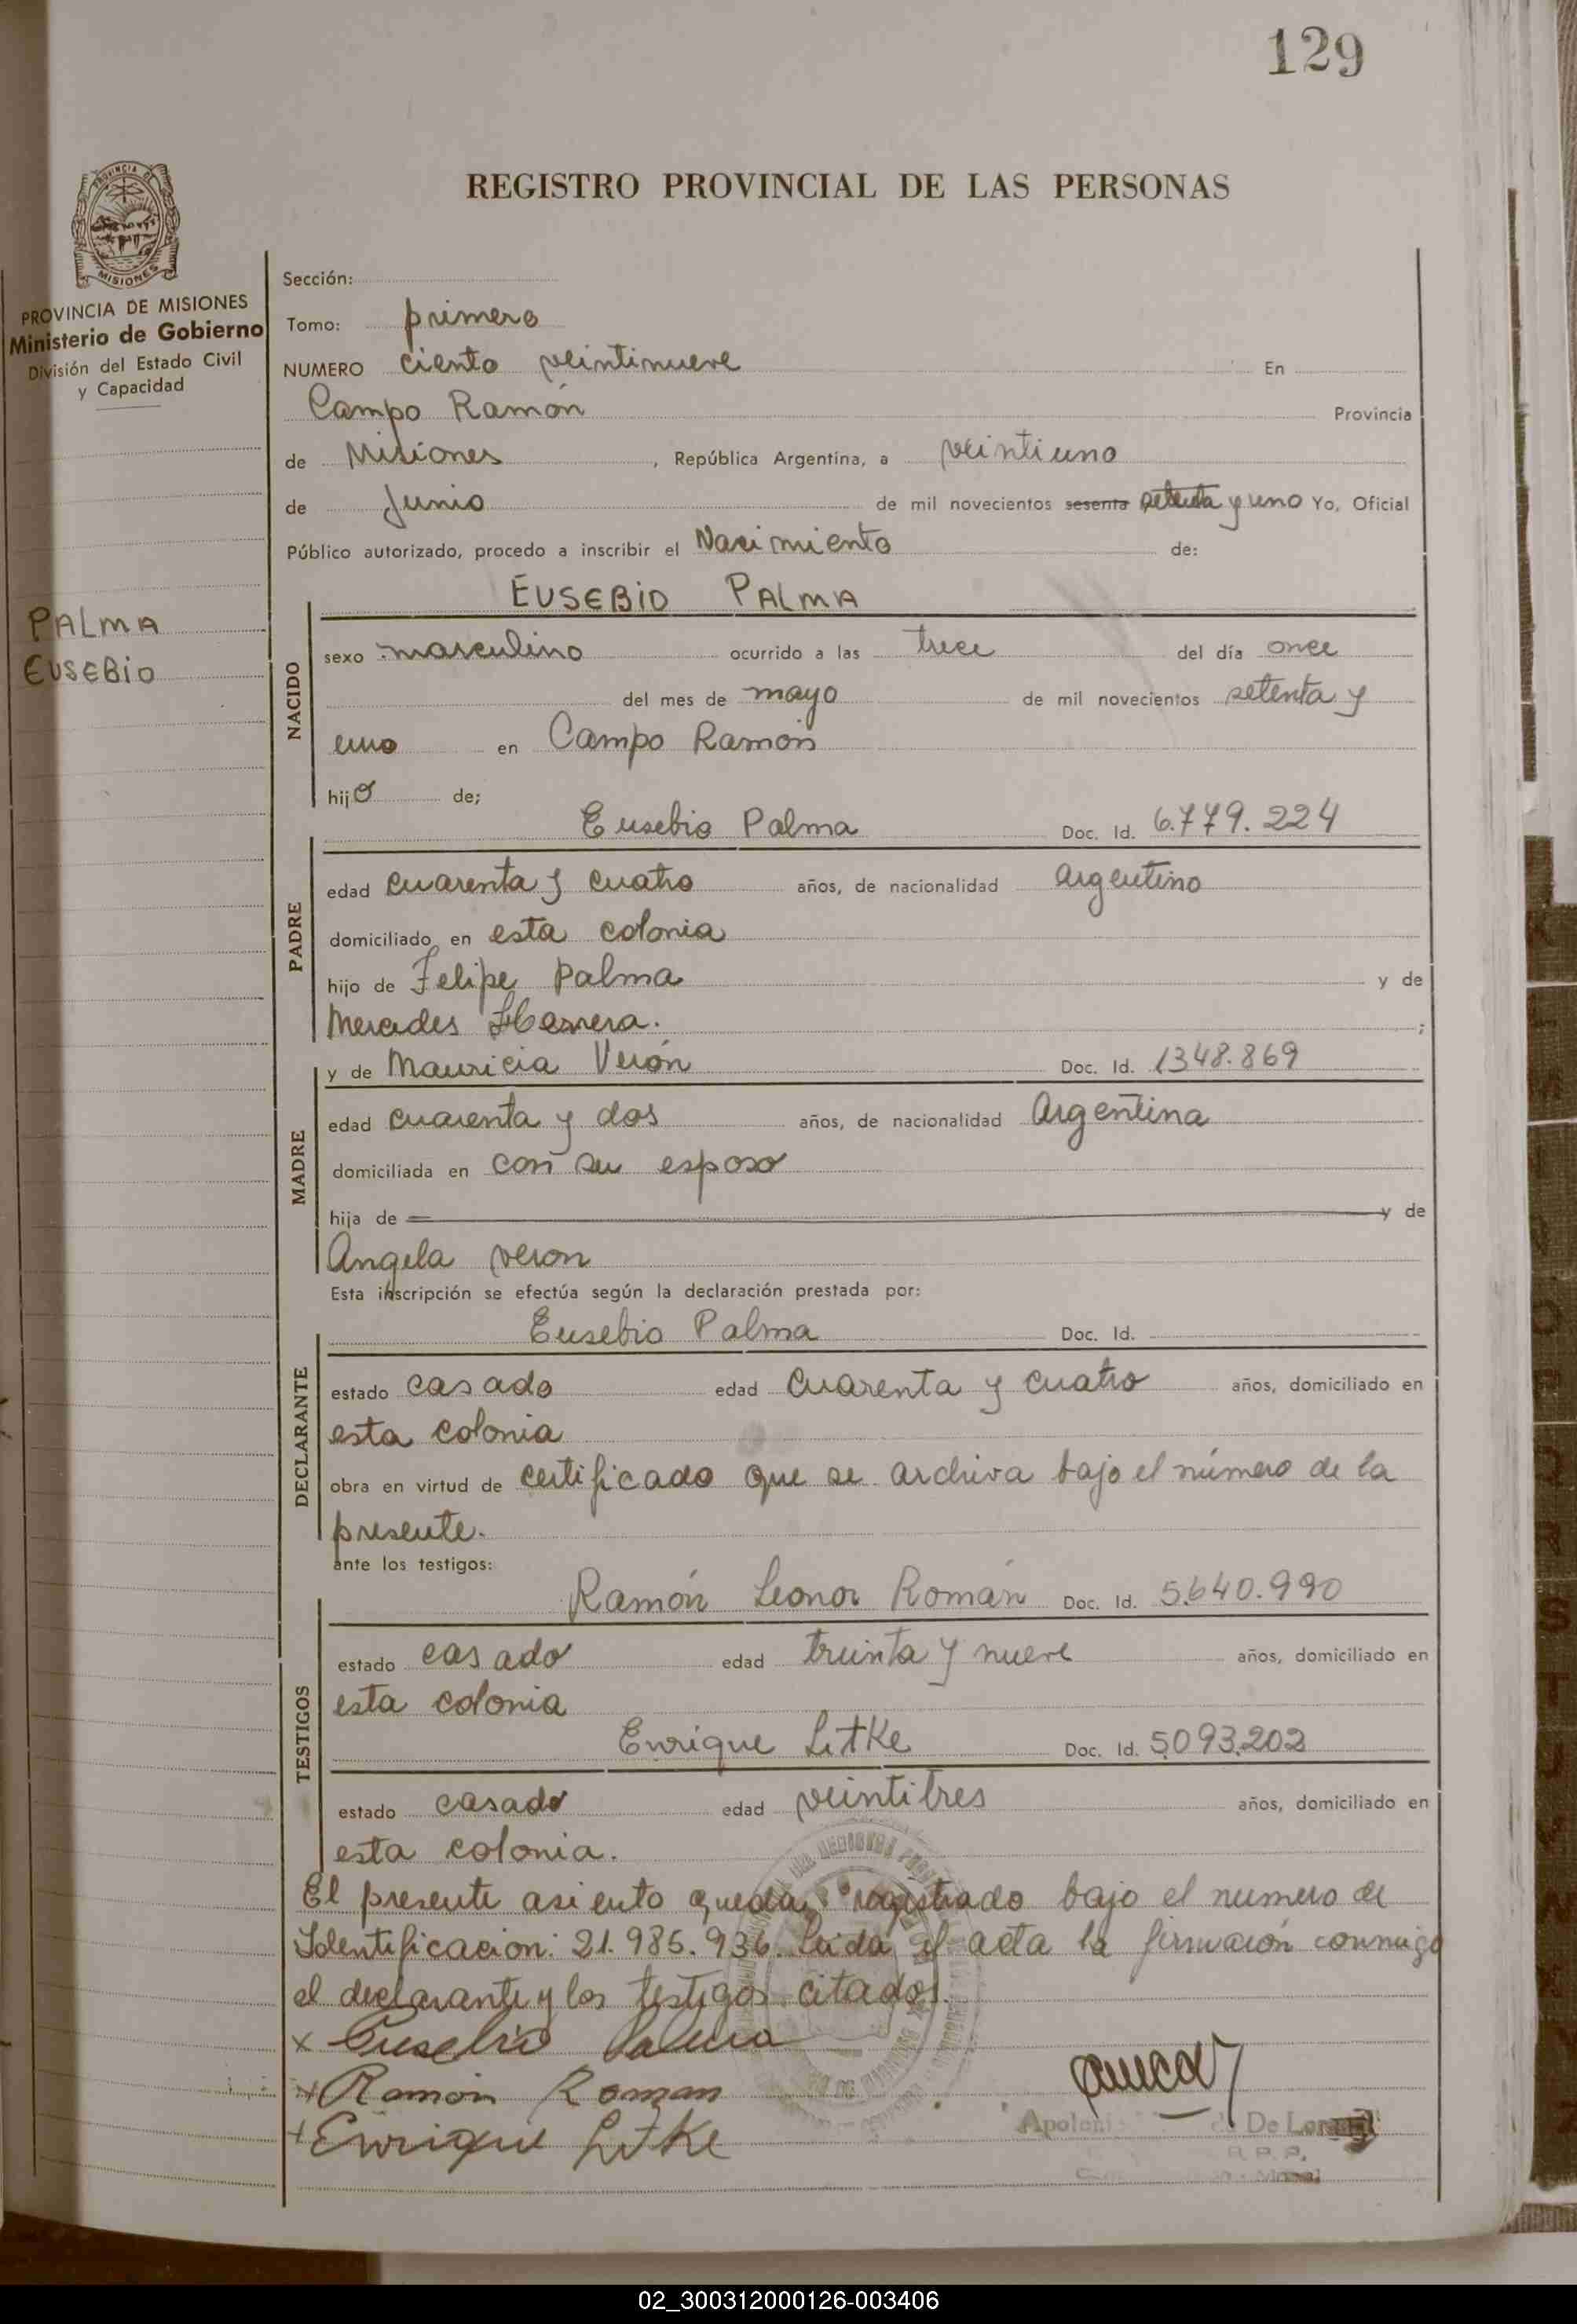 129
REGISTRO PROVINCIAL DE LAS PERSONAS
PROVINCIA DE
MISIONES
PROVINCIA DE MISIONES
Ministerio de Gobierno
División del Estado Civil
y Capacidad
PALMA
EUSEBIO
Sección:
Tomo: primero
NUMERO ciento veintinueve En
Campo Ramón Provincia
de Misiones, República Argentina, a veintiuno
de Junio de mil novecientos sesenta setenta y uno Yo, Oficial
Público autorizado, procedo a inscribir el Nacimiento de:
EUSEBIO PALMA
NACIDO
sexo masculino ocurrido a las trece del día once
del mes de mayo de mil novecientos setenta y
uno en Campo Ramón
hijo de;
Eusebio Palma Doc. Id. 6.779.224
PADRE
edad cuarenta y cuatro años, de nacionalidad argentino
domiciliado en esta colonia
hijo de Felipe Palma y de
Mercedes Herrera. ;
y de Mauricia Verón Doc. Id. 1348.869
MADRE
edad cuarenta y dos años, de nacionalidad Argentina
domiciliada en con su esposo
hija de y de
Angela veron
Esta inscripción se efectúa según la declaración prestada por:
Eusebio Palma Doc. Id.
DECLARANTE
estado casado edad cuarenta y cuatro años, domiciliado en
esta colonia
obra en virtud de certificado que se archiva bajo el número de la
presente.
ante los testigos:
Ramón Leonor Román Doc. Id. 5.640.990
TESTIGOS
estado casado edad treinta y nueve años, domiciliado en
esta colonia
Enrique Litke Doc. Id. 5.093.202
estado casado edad veintitres años, domiciliado en
esta colonia.
El presente asiento queda registrado bajo el numero de
Identificacion: 21.985.936. Leida el acta la firmaron conmigo
el declarante y los testigos citados.
x Eusebio Palma
+ Ramón Roman
+ Enrique Litke
De
02_300312000126-003406